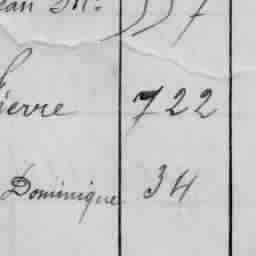 ean M.
ierre 722
Dominique 34